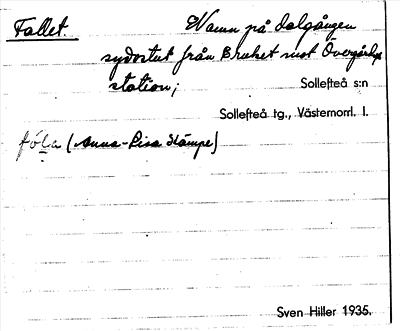 Fallet. Namn på dalgången
sydostut från Bruket mot Övergårds
station;
Sollefteå s:n
Sollefteå tg., Västernorrl. l.
(Anna-Lisa Stämpe)
Sven Hiller 1935.